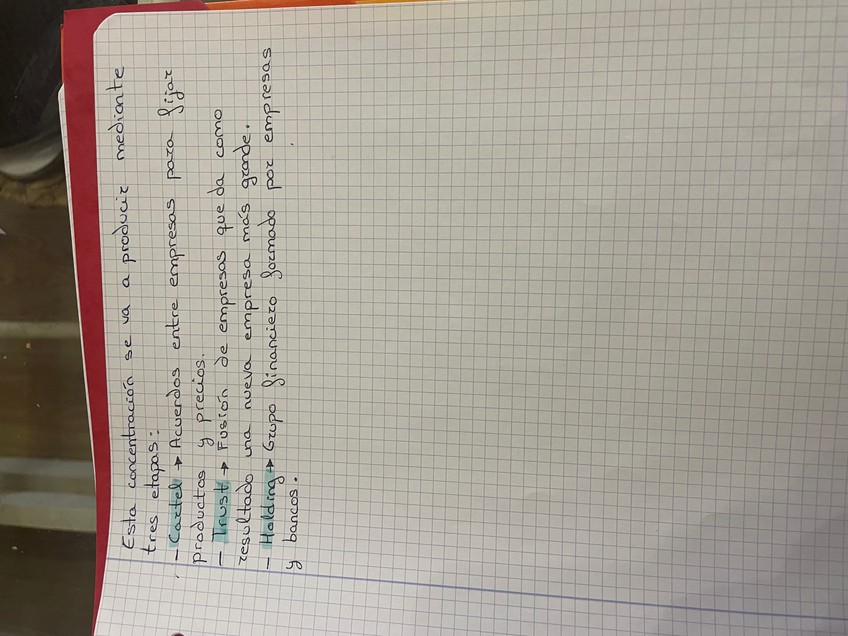 Esta concentración se va a producir mediante
tres etapas:
- Cartel → Acuerdos entre empresas para fijar
productos y precios.
- Trust → Fusión de empresas que da como
resultado una nueva empresa más grande.
- Holding → Grupo financiero formado por empresas
y bancos.